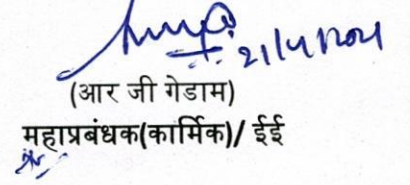 21/4/2021
(आर जी गेडाम)
महाप्रबंधक(कार्मिक)/ ईई